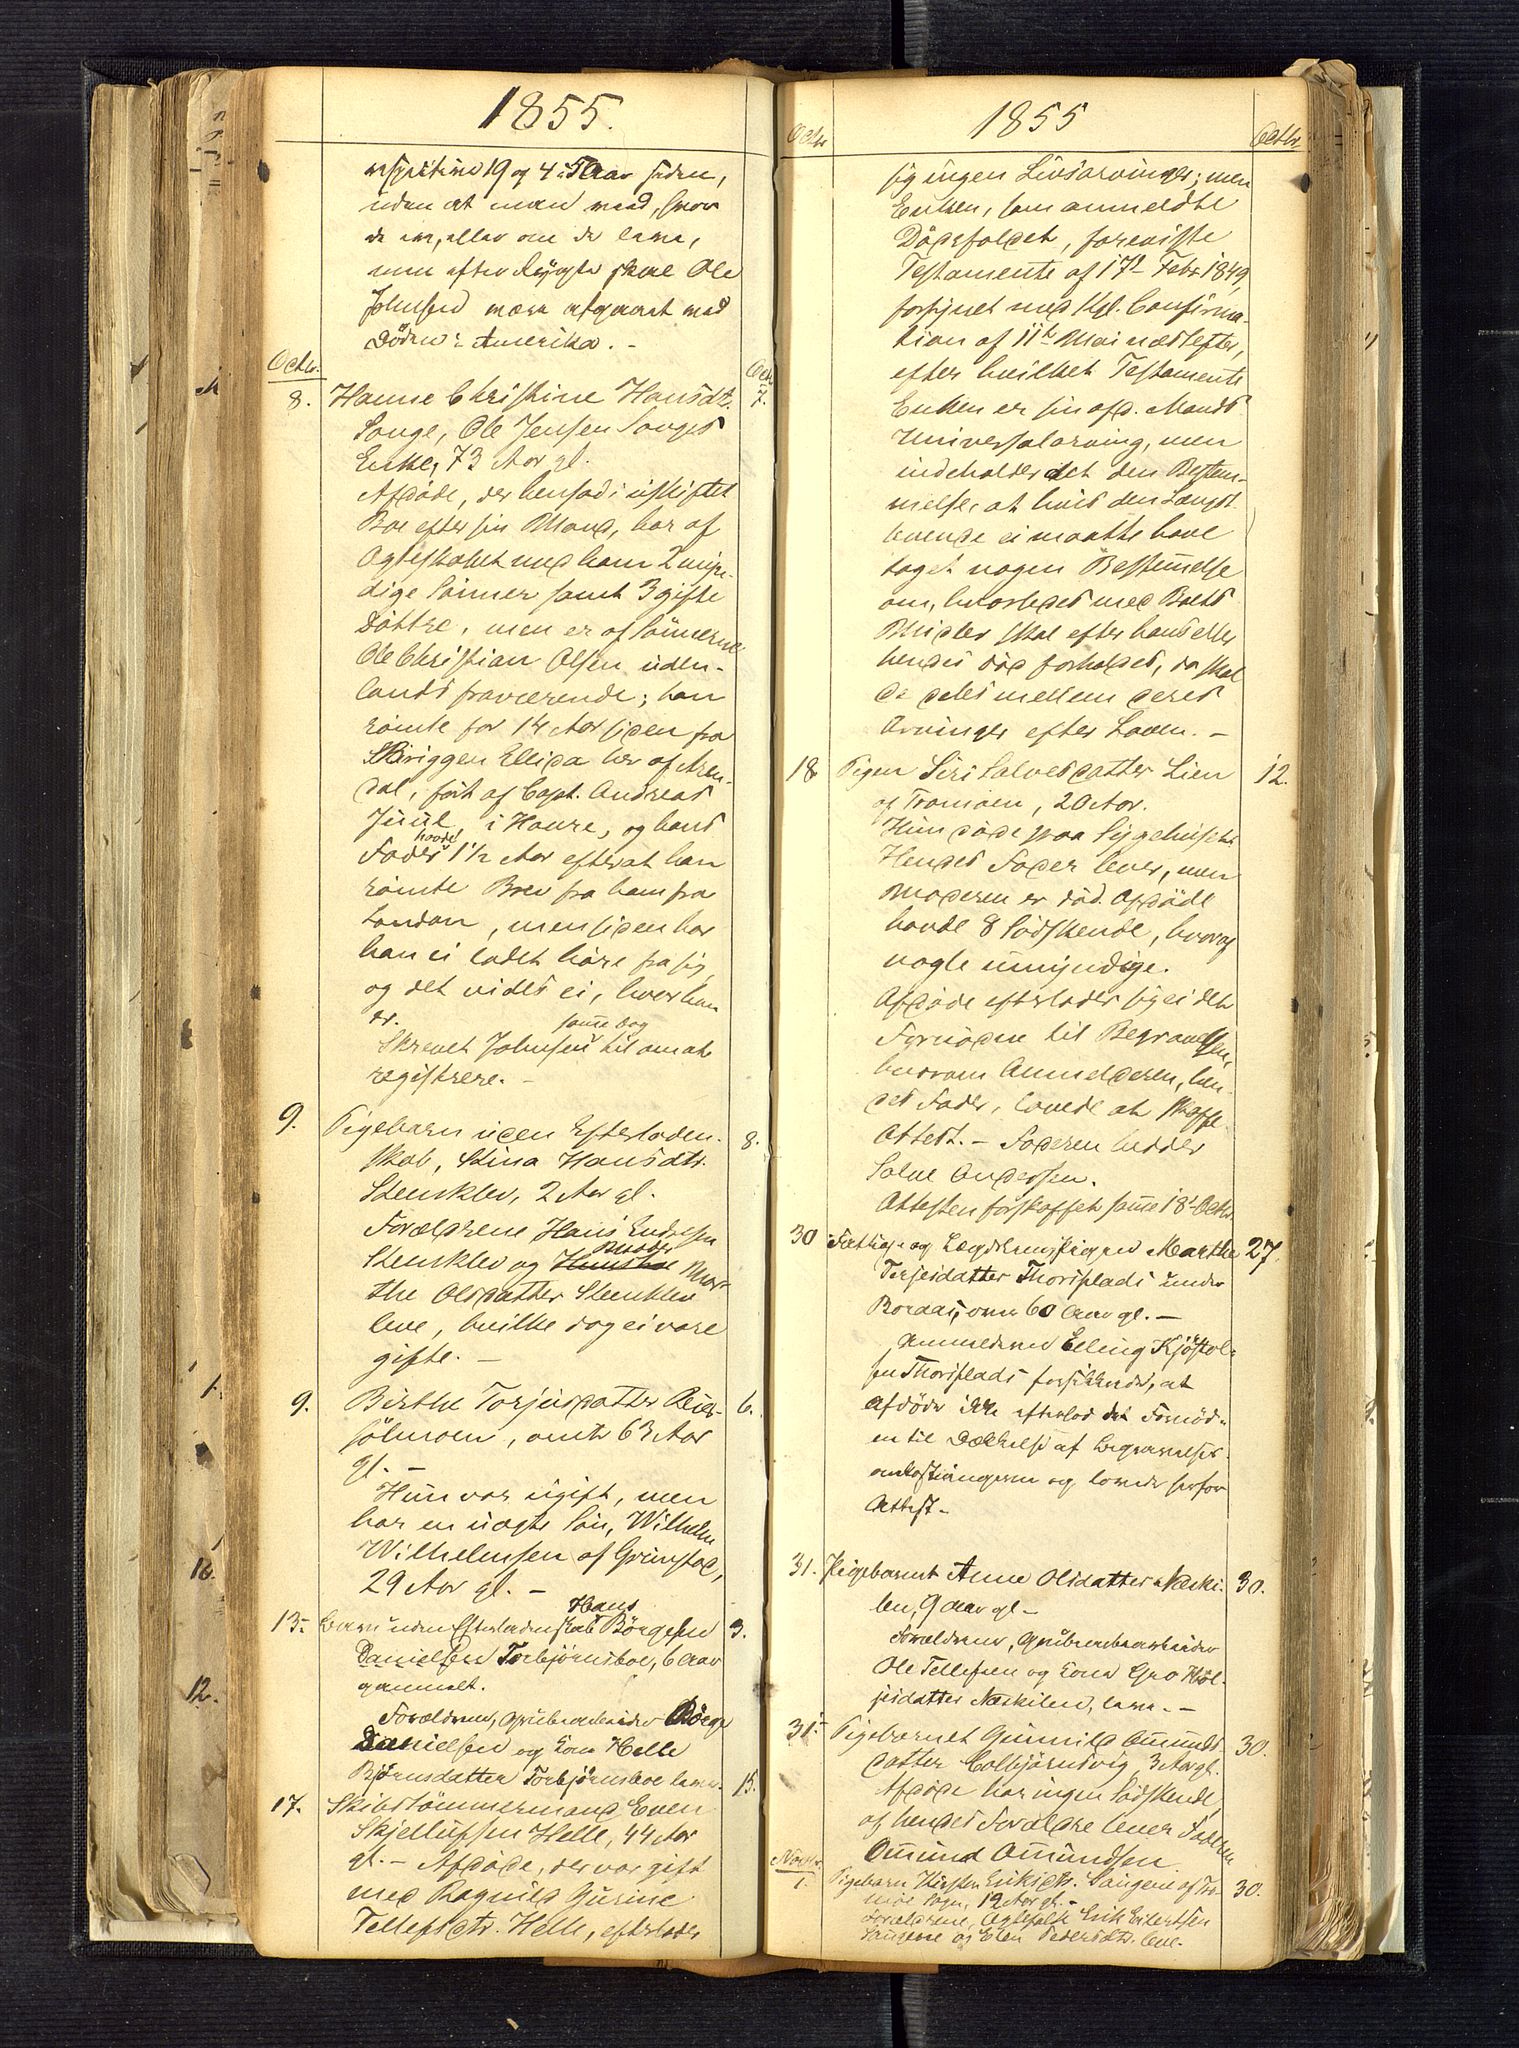 1855.
respective 19 og 4 à 5 Aar siden,
uden at man veed, hvor
de ere, eller om de leve,
men efter Rygte skal Ole
Johnsen være afgaaet ved
Døden i Amerika. -
Octbr. Octbr
8. Hanne Christine Hansdtr. 7.
Songe, Ole Jensen Songes
Enke, 73 Aar gl.
Afdöde, der hensad i uskiftet
Boe efter sin Mand, har af
Ægteskabet med ham 2 myn-
dige Sönner samt 3 gifte
Döttre, men er af Sönnerne
Ole Christian Olsen uden-
lands fraværende; han
römte for 14 Aar siden fra
Skbriggen Ellida her af Aren-
dal, fört af Capt. Andreas
Juul, i Havre, og hans
Fader havde 1½ Aar efterat han
römte Brev fra ham fra
London, men siden har
han ei ladet höre fra sig,
og det vides ei, hvor han
er.
Skrevet Johnsen samme Dag til om at
registrere. -
9. Pigebarn uden Efterladen- 8.
skab, Stina Hansdtr.
Stenklev, 2 Aar gl.
Forældrene Hans Endresen
Stenklev og Hustroe Marthe Olsdatter Stenklev
leve, hvilke dog ei vare
gifte. -
9. Birthe Torjusdatter Reier- 6.
sölmoen, omtr 63 Aar
gl. -
Hun var ugift, men
har en uægte Sön, Wilhelm
Wilhelmsen af Grimstad,
29 Aar gl. -
13. Barn uden Efterladenskab Hans Börgesen 3.
Danielsen Torbjörnsboe, 6 Aar
gammelt.
Forældrene, Grubearbeider Börge
Danielsen og Kone Helle
Bjørnsdatter Torbjørnsboe leve. 15.
17. Skibstömmermand Even
Skjellufsen Helle, 44 Aar
gl. - Afdöde, der var gift
med Ragnild Gurine
Tellefsdtr. Helle, efterlader
1855
Octbr Octbr.
sig ingen Livsarvinger; men
Enken, som anmeldte
Dödsfaldet, foreviste
Testamente af 17de Febr 1849,
forsynet med Kgl. Confirma-
tion af 11te Mai næstefter,
efter hvilket Testamente
Enken er sin afd. Mands
Universalarving, men
indeholder det den Bestem-
melse, at hvis den Længst-
levende ei maatte have
taget nogen Bestemmelse
om, hvorledes med Boets
Midler skal efter hans eller
hendes död forholdes, da skal
de deles mellem deres
Arvinger efter Loven. -
18 Pigen Siri Salvesdatter Lien 12.
af Tromöen, 20 Aar.
Hun döde paa Sygehuset.
Hendes Fader lever, men
Moderen er död. Afdöde
havde 8 Södskende, hvoraf
nogle umyndige.
Afdöde efterlader sig ei det
Fornödne til Begravelsen,
hvorom Anmelderen, hen-
des Fader, lovede at skaffe
Attest. - Faderen hedder
Salve Andersen.
Attesten forskaffet samme 18de Octbr.
30 Fattig- og Lægdslemspigen Marthe 27.
Terjesdatter Thorsplads under
Bordas, over 60 Aar gl. -
Anmelderen Elling Kjöstol-
sen Thorsplads forsikrede, at
Afdöde ikke efterlod det Fornöd-
ne til Dækkelse af Begravelses-
omkostningerne og lovede herfor
Attest -
31. Pigebarnet Anne Olsdatter Næski- 30.
len, 9 Aar gl -
Forældrene, Grubearbeider
Ole Tellefsen og Kone Gro Höl-
jesdatter Næskilen, leve. -
31. Pigebarnet Gunnild Omunds- 30.
datter Colbjörnsvig 3 Aar gl.
Afdöde har ingen Södskende,
af hendes Forældre lever Faderen
Omund Omundsen.
Novbr.
1. Pigebarn Kirsten Eriksdtr. Songene af Tro- 30.
möe Sogn, 12 Aar gl. -
Forældrene, Ægtefolk Erik Eilertsen
Songene og Elen Pedersdtr. leve.